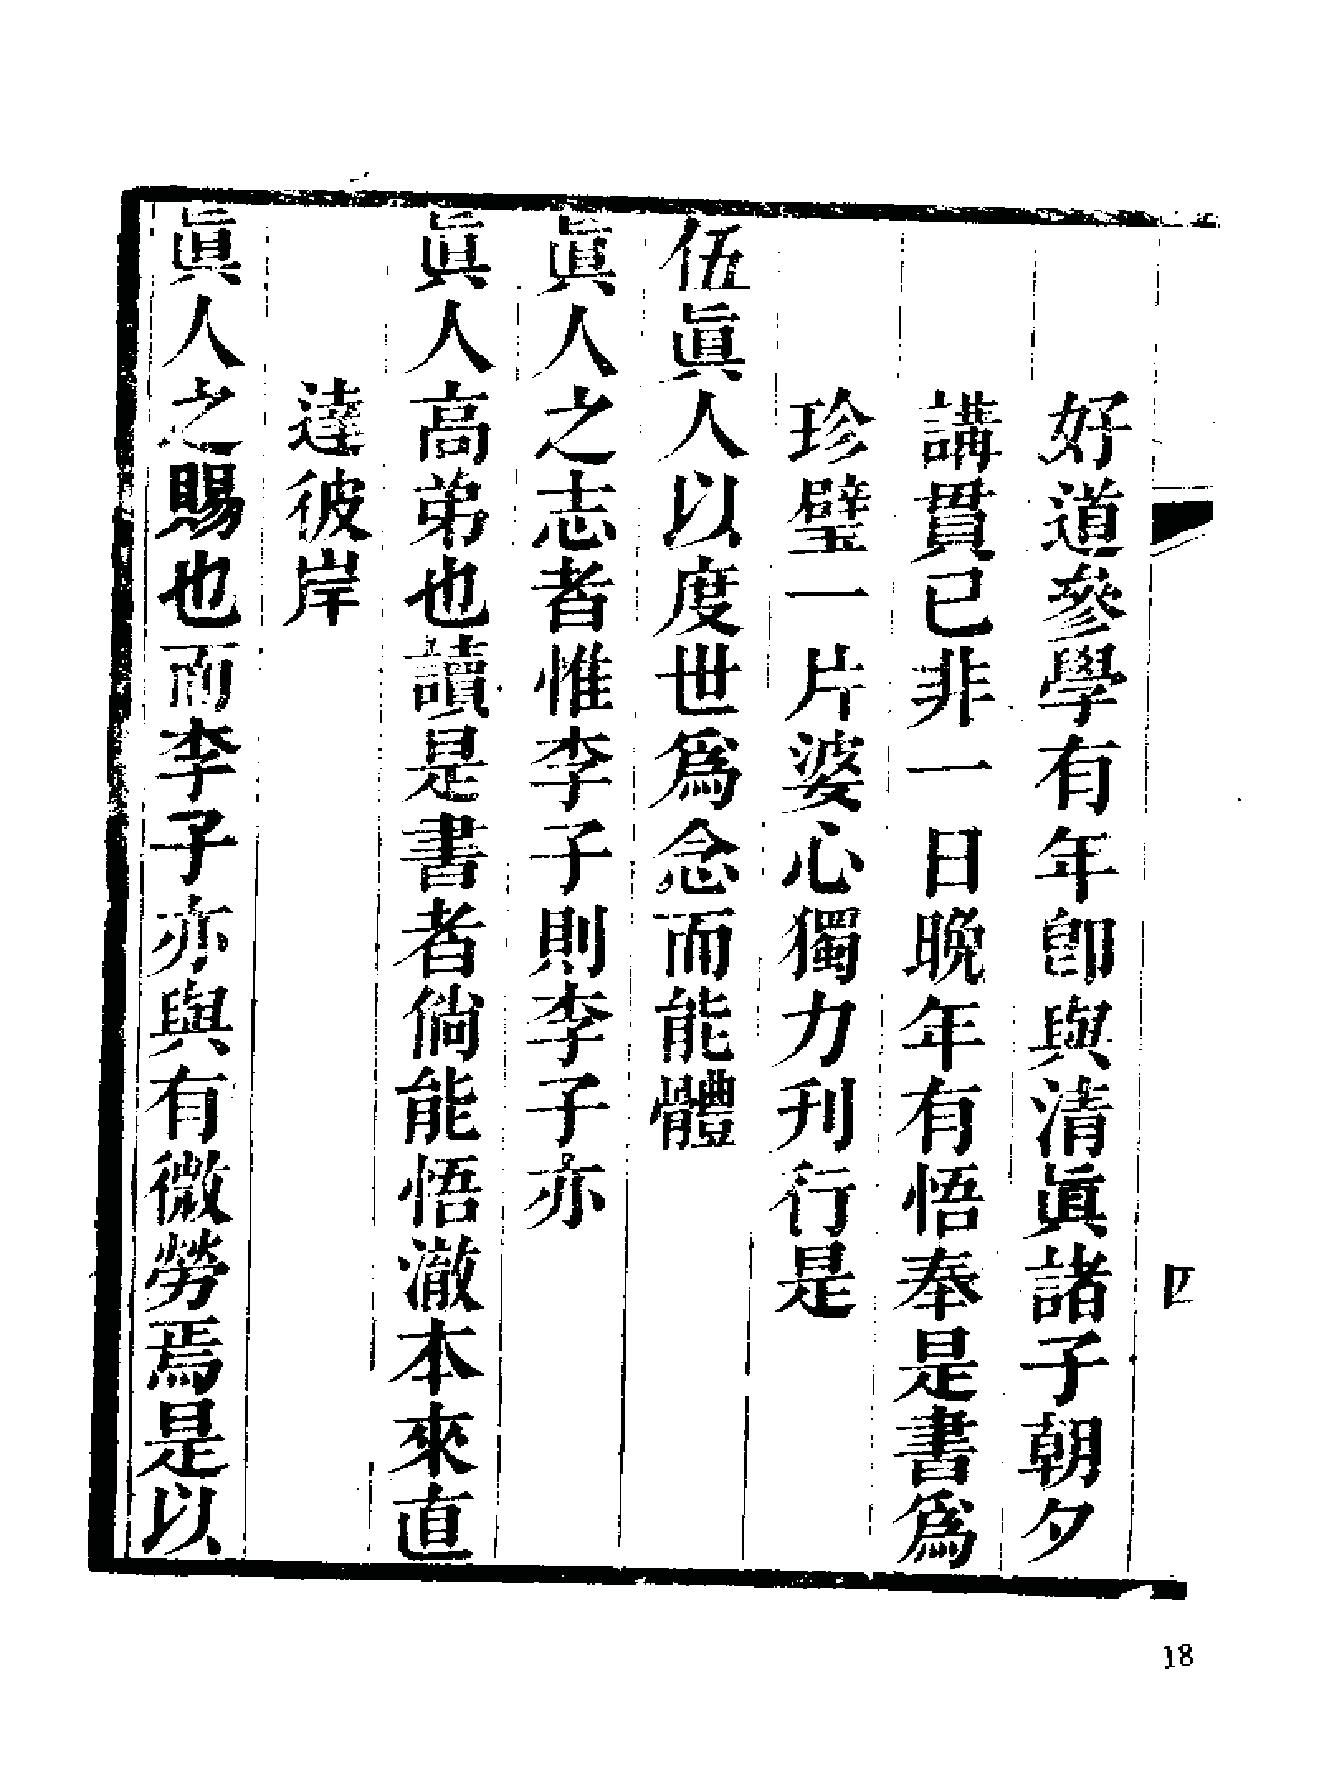 四
好道參學有年卽與清眞諸子朝夕
講貫已非一日晚年有悟奉是書爲
珍璧一片婆心獨力刊行是
伍眞人以度世爲念而能體
眞人之志者惟李子則李子亦
眞人高弟也讀是書者倘能悟澈本來直
達彼岸
眞人之賜也而李子亦與有微勞焉是以
18